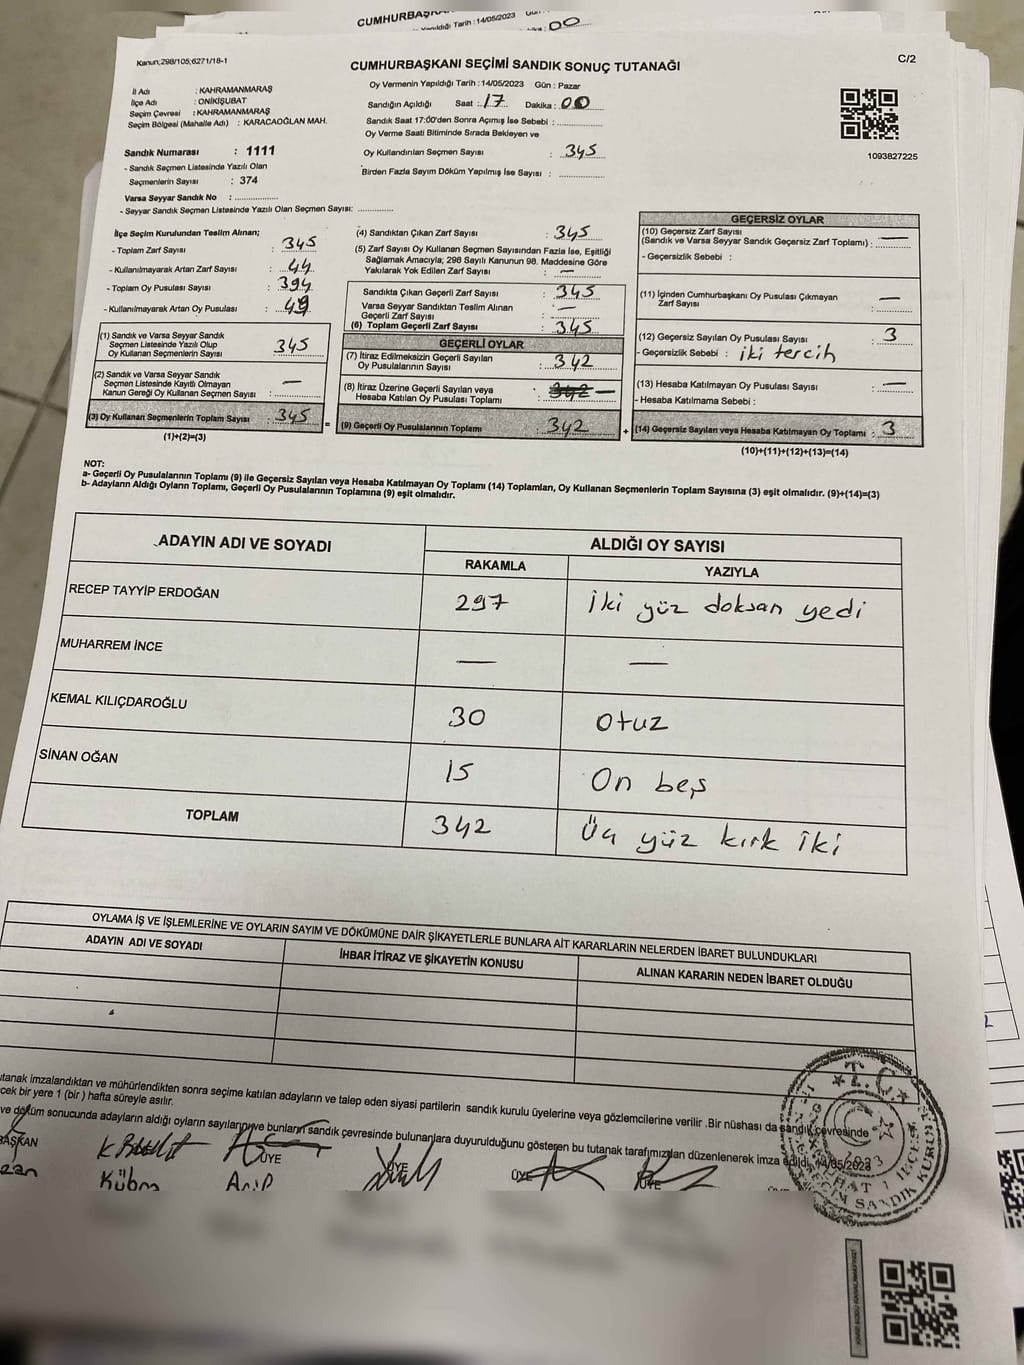 CUMHURBAŞKA
Yapıldığı Tarih : 14/05/2023
00
Kanun;298/105;6271/18-1
C/2
CUMHURBAŞKANI SEÇİMİ SANDIK SONUÇ TUTANAĞI
İl Adı : KAHRAMANMARAŞ
İlçe Adı : ONİKİŞUBAT
Seçim Çevresi : KAHRAMANMARAŞ
Seçim Bölgesi (Mahalle Adı) : KARACAOĞLAN MAH.
Sandık Numarası : 1111
- Sandık Seçmen Listesinde Yazılı Olan
Seçmenlerin Sayısı : 374
Varsa Seyyar Sandık No : ..................
- Seyyar Sandık Seçmen Listesinde Yazılı Olan Seçmen Sayısı: ..............
Oy Vermenin Yapıldığı Tarih : 14/05/2023 Gün : Pazar
Sandığın Açıldığı Saat : 17 Dakika : 00
Sandık Saat 17:00'den Sonra Açımış İse Sebebi : ..................
Oy Verme Saati Bitiminde Sırada Bekleyen ve
Oy Kullandırılan Seçmen Sayısı : 345
Birden Fazla Sayım Döküm Yapılmış İse Sayısı : ..................
1093827225
İlçe Seçim Kurulundan Teslim Alınan;
- Toplam Zarf Sayısı : 345
- Kullanılmayarak Artan Zarf Sayısı : 44
- Toplam Oy Pusulası Sayısı : 394
- Kullanılmayarak Artan Oy Pusulası : 49
(1) Sandık ve Varsa Seyyar Sandık
Seçmen Listesinde Yazılı Olup
Oy Kullanan Seçmenlerin Sayısı : 345
(2) Sandık ve Varsa Seyyar Sandık
Seçmen Listesinde Kayıtlı Olmayan
Kanun Gereği Oy Kullanan Seçmen Sayısı : —
(3) Oy Kullanan Seçmenlerin Toplam Sayısı : 345
(1)+(2)=(3)
(4) Sandıktan Çıkan Zarf Sayısı : 345
(5) Zarf Sayısı Oy Kullanan Seçmen Sayısından Fazla İse, Eşitliği
Sağlamak Amacıyla; 298 Sayılı Kanunun 98. Maddesine Göre
Yakılarak Yok Edilen Zarf Sayısı : —
Sandıkta Çıkan Geçerli Zarf Sayısı : 345
Varsa Seyyar Sandıktan Teslim Alınan
Geçerli Zarf Sayısı : —
(6) Toplam Geçerli Zarf Sayısı : 345
GEÇERLİ OYLAR
(7) İtiraz Edilmeksizin Geçerli Sayılan
Oy Pusulalarının Sayısı : 342
(8) İtiraz Üzerine Geçerli Sayılan veya
Hesaba Katılan Oy Pusulası Toplamı : 342 —
(9) Geçerli Oy Pusulalarının Toplamı : 342
GEÇERSİZ OYLAR
(10) Geçersiz Zarf Sayısı
(Sandık ve Varsa Seyyar Sandık Geçersiz Zarf Toplamı) : —
- Geçersizlik Sebebi :
(11) İçinden Cumhurbaşkanı Oy Pusulası Çıkmayan
Zarf Sayısı : —
(12) Geçersiz Sayılan Oy Pusulası Sayısı : 3
- Geçersizlik Sebebi : iki tercih
(13) Hesaba Katılmayan Oy Pusulası Sayısı : —
- Hesaba Katılmama Sebebi :
(14) Geçersiz Sayılan veya Hesaba Katılmayan Oy Toplamı : 3
(10)+(11)+(12)+(13)=(14)
NOT:
a- Geçerli Oy Pusulalarının Toplamı (9) ile Geçersiz Sayılan veya Hesaba Katılmayan Oy Toplamı (14) Toplamları, Oy Kullanan Seçmenlerin Toplam Sayısına (3) eşit olmalıdır. (9)+(14)=(3)
b- Adayların Aldığı Oyların Toplamı, Geçerli Oy Pusulalarının Toplamına (9) eşit olmalıdır.
ADAYIN ADI VE SOYADI ALDIĞI OY SAYISI
RAKAMLA YAZIYLA
RECEP TAYYİP ERDOĞAN 297 İki yüz doksan yedi
MUHARREM İNCE — —
KEMAL KILIÇDAROĞLU 30 otuz
SİNAN OĞAN 15 On beş
TOPLAM 342 Üç yüz kırk iki
OYLAMA İŞ VE İŞLEMLERİNE VE OYLARIN SAYIM VE DÖKÜMÜNE DAİR ŞİKAYETLERLE BUNLARA AİT KARARLARIN NELERDEN İBARET BULUNDUKLARI
ADAYIN ADI VE SOYADI İHBAR İTİRAZ VE ŞİKAYETİN KONUSU ALINAN KARARIN NEDEN İBARET OLDUĞU
utanak imzalandıktan ve mühürlendikten sonra seçime katılan adayların ve talep eden siyasi partilerin sandık kurulu üyelerine veya gözlemcilerine verilir .Bir nüshası da sandık çevresinde
cek bir yere 1 (bir ) hafta süreyle asılır.
ve döküm sonucunda adayların aldığı oyların sayılarını ve bunların sandık çevresinde bulunanlara duyurulduğunu gösteren bu tutanak tarafımızdan düzenlenerek imza edildi. 14/05/2023
BAŞKAN ÜYE ÜYE ÜYE ÜYE
Kübra Arip
T.C.
2023
SEÇİM SANDIK KURULU